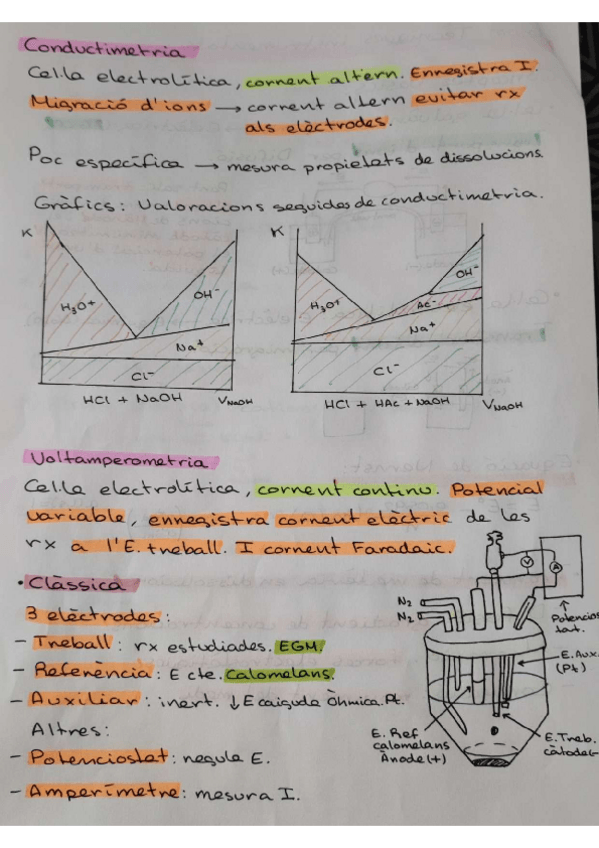 Conductimetria
Cel.la electrolítica, corrent altern. Enregistra I.
Migració d'ions → corrent altern evitar rx
als elèctrodes.
Poc específica → mesura propietats de dissolucions.
Gràfics: Valoracions seguides de conductimetria.
K
H3O+
OH-
Na+
Cl-
HCl + NaOH
VNaOH
K
H3O+
OH-
Ac-
Na+
Cl-
HCl + HAc + NaOH
VNaOH
Voltamperometria
Cel.la electrolítica, corrent continu. Potencial
variable, enregistra corrent elèctric de les
rx a l'E. treball. I corrent Faradaic.
• Clàssica
3 elèctrodes:
- Treball: rx estudiades. EGM.
- Referència: E cte. Calomelans.
- Auxiliar: inert. ↓E caiguda Òhmica. Pt.
Altres:
- Potenciostat: regula E.
- Amperímetre: mesura I.
V
A
N2
N2
Potencios
tat.
E. Aux.
(Pt)
E. Ref
calomelans
Ànode (+)
E. Treb.
càtode (-